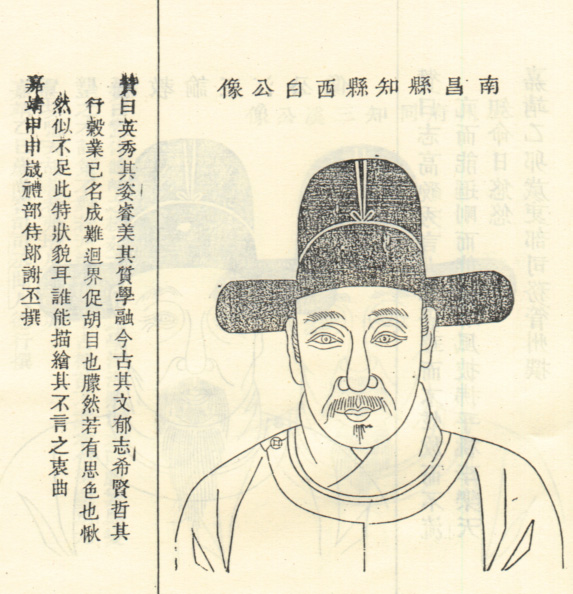 南昌縣知縣西白公像
贊曰英秀其姿睿美其質學融今古其文郁志希賢哲其
行毅業已名成難迴界促胡目也朦然若有思色也愀
然似不足此特狀貌耳誰能描繪其不言之衷曲
嘉靖甲申歲禮部侍郎謝丕撰